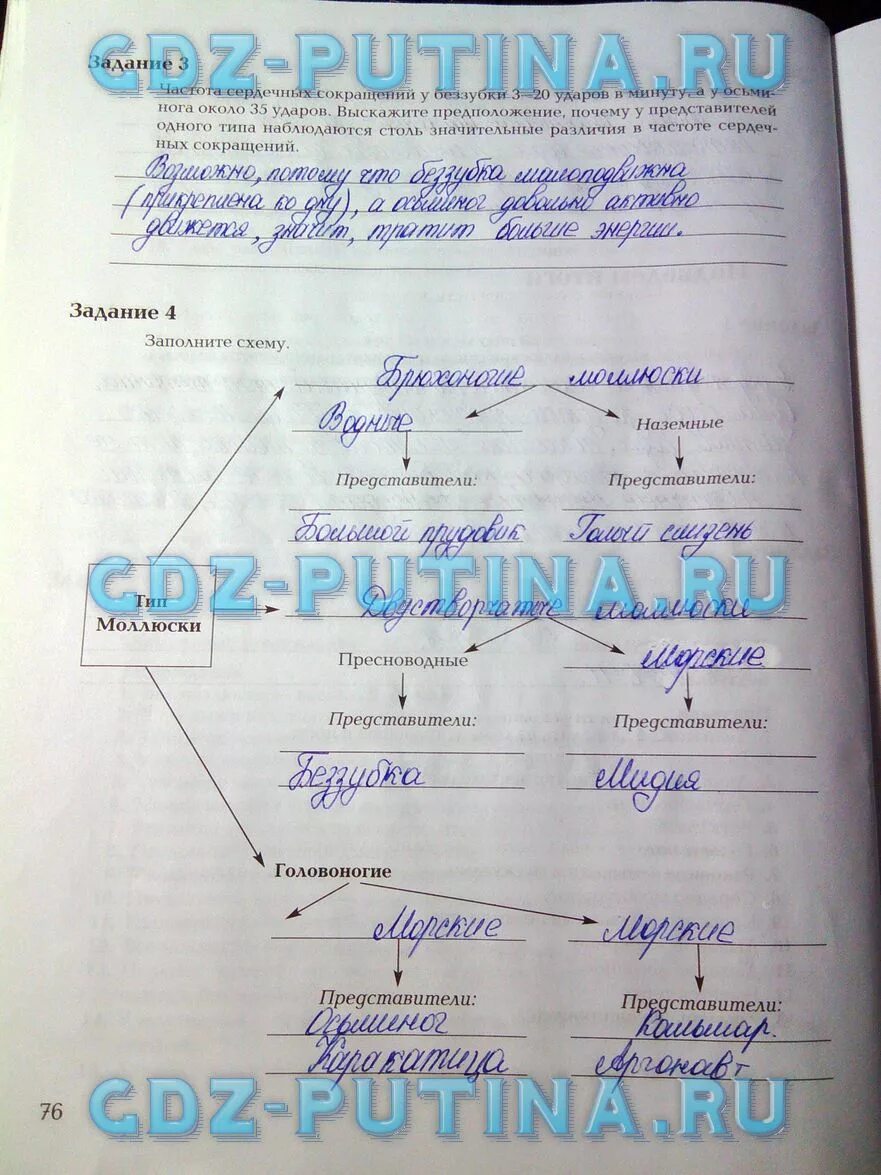 GDZ-PUTINA.RU
Задание 3
Частота сердечных сокращений у беззубки 3—20 ударов в минуту, а у осьми-
нога около 35 ударов. Выскажите предположение, почему у представителей
одного типа наблюдаются столь значительные различия в частоте сердеч-
ных сокращений.
Возможно, потому что беззубка малоподвижна
(прикреплена ко дну), а осьминог довольно активно
движется, значит, тратит больше энергии.
GDZ-PUTINA.RU
Задание 4
Заполните схему.
Брюхоногие моллюски
Водные Наземные
Представители: Представители:
Большой прудовик Голый слизень
GDZ-PUTINA.RU
Тип
Моллюски
Двустворчатые моллюски
Пресноводные Морские
Представители: Представители:
Беззубка Мидия
Головоногие
GDZ-PUTINA.RU
Морские Морские
Представители: Представители:
Осьминог Кальмар.
Каракатица Аргонавт
76
GDZ-PUTINA.RU